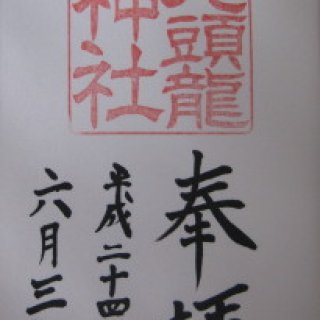 九頭龍
神社
奉拝
平成二十四
六月三